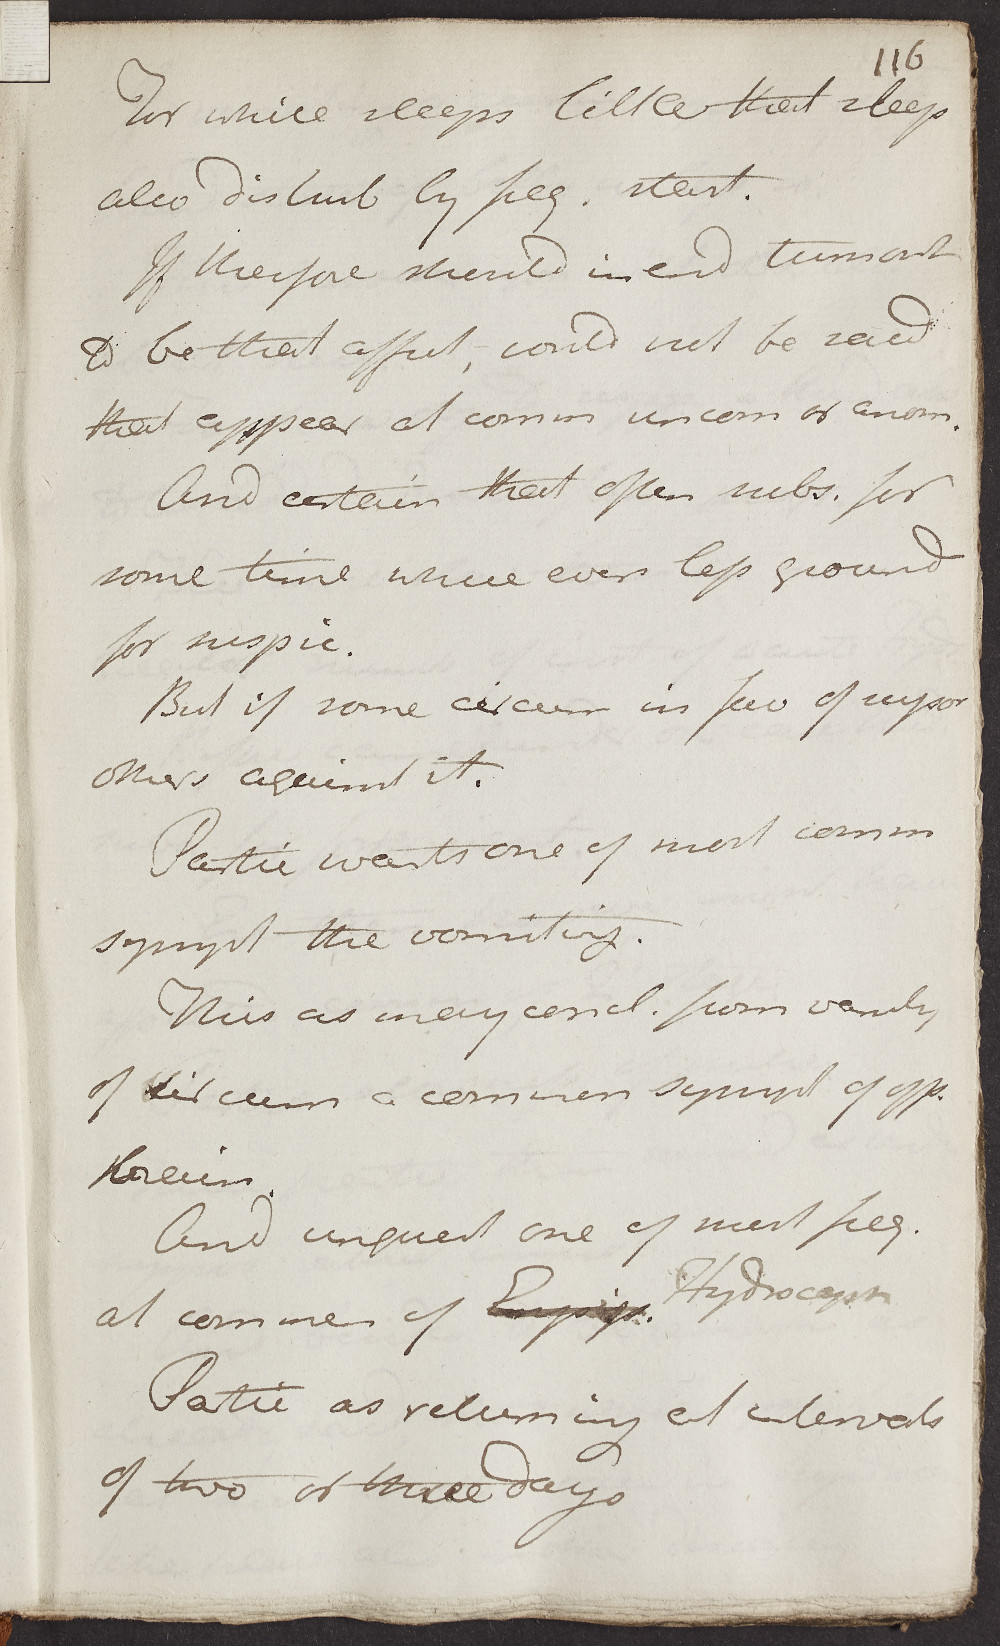 116
For while sleeps little that sleep
also disturb by freq. start.
If therfore should in end turn out
to be that affect, could not be said
that appear at comm uncom or anom.
And certain that often subs. for
some time where even less ground
for suspic.
But if some circum in fav of suppos
others against it.
Partic wants one of most comm
sympt the vomiting.
This as may concl. from variety
of circum a common sympt of aff.
brain.
And unquest one of most freq.
at commen of Hydroceph
Partic as returning at intervals
of two or three days